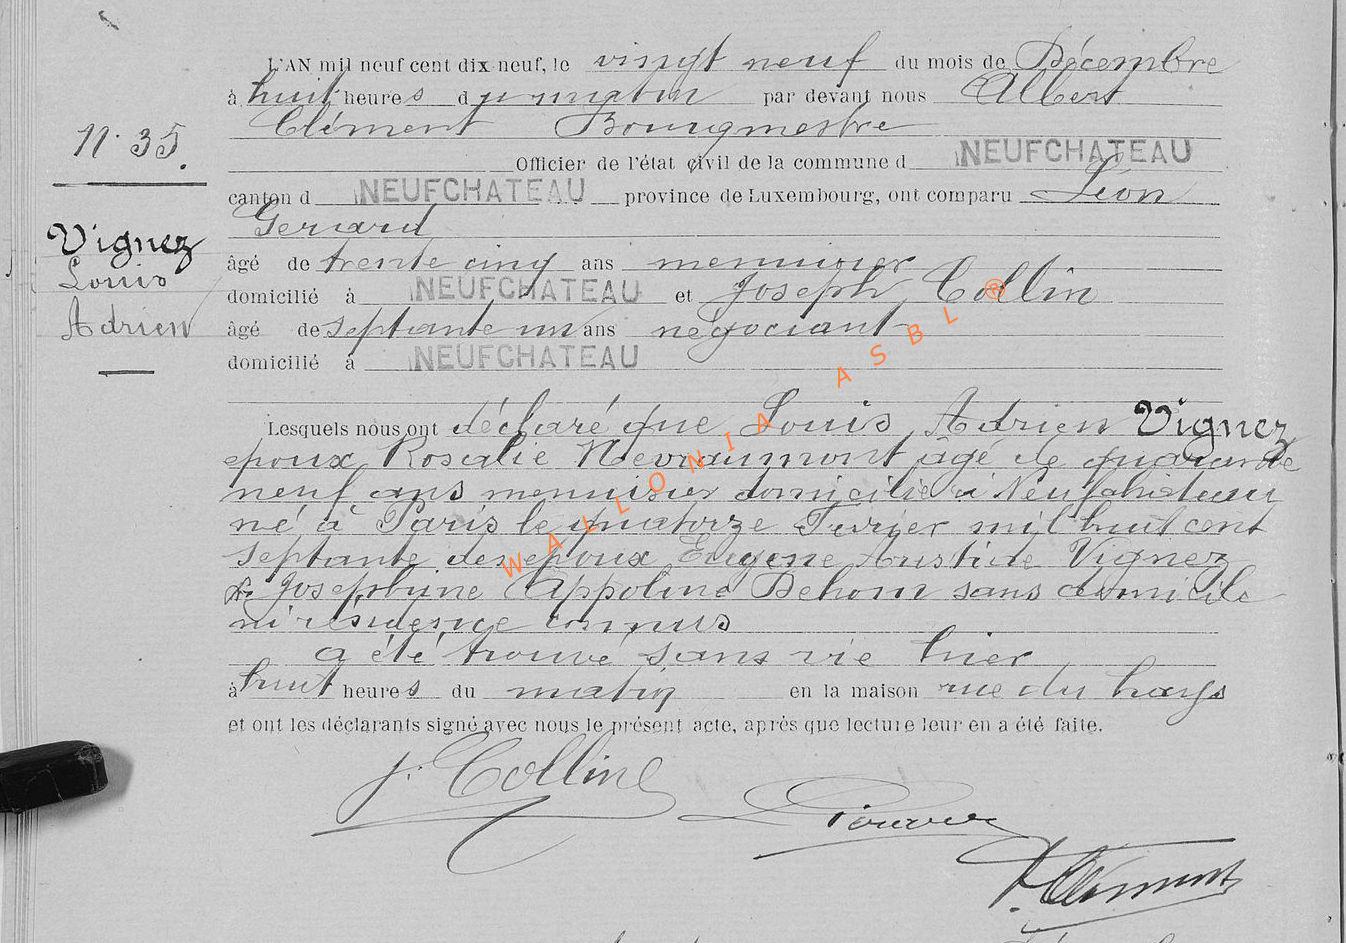 L'AN mil neuf cent dix-neuf, le vingt neuf du mois de Décembre
à huit heures du matin par devant nous Albert
Clément Bourgmestre
N° 35.
Officier de l'état civil de la commune d NEUFCHATEAU
canton d NEUFCHATEAU province de Luxembourg, ont comparu Léon
Gerard
Vignez
Louis
Adrien
âgé de trente cinq ans menuisier
domicilié à NEUFCHATEAU et Joseph Collin
âgé de septante un ans négociant
domicilié à NEUFCHATEAU
Lesquels nous ont déclaré que Louis Adrien Vignez
epoux Rosalie Nevraumont âgé de quarante
neuf ans menuisier domicilié à Neufchateau
né à Paris le quatorze Fevrier mil huit cent
septante des epoux Eugene Aristide Vignez
& Josephine Appoline Dehom sans domicile
ni résidence connus
a été trouvé sans vie hier
à huit heures du matin en la maison rue du
et ont les déclarants signé avec nous le présent acte, après que lecture leur en a été faite.
J. Colline
Clément
WALLONIA ASBL ®